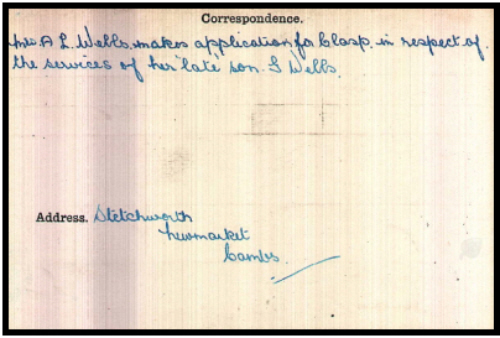 Correspondence.
Mrs A L. Wells. makes application for Clasp in respect of
the services of her "late" son. S Wells.
Address. Stetchworth
Newmarket
Cambs.